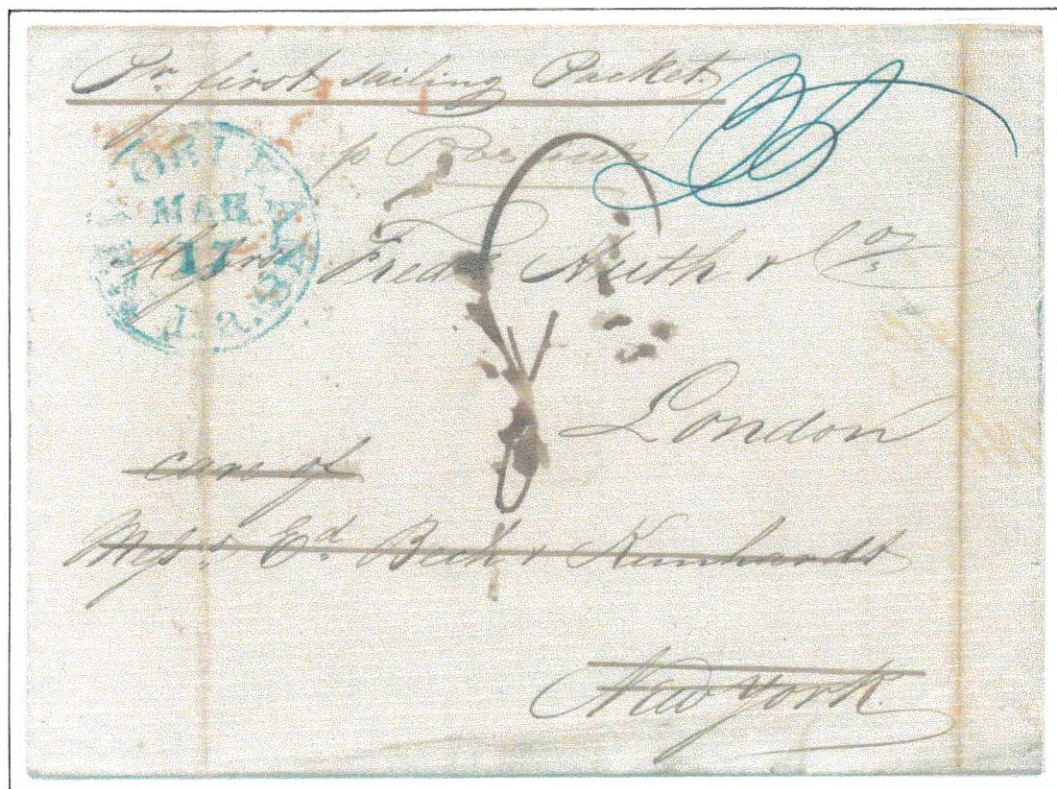 Pr. first sailing Packet.
p Roscius
NEW ORLEANS La.
MAR
17
Messrs Fredk Huth & Co
London
care of
Messrs Ed. Beck & Kunhardt
New York.